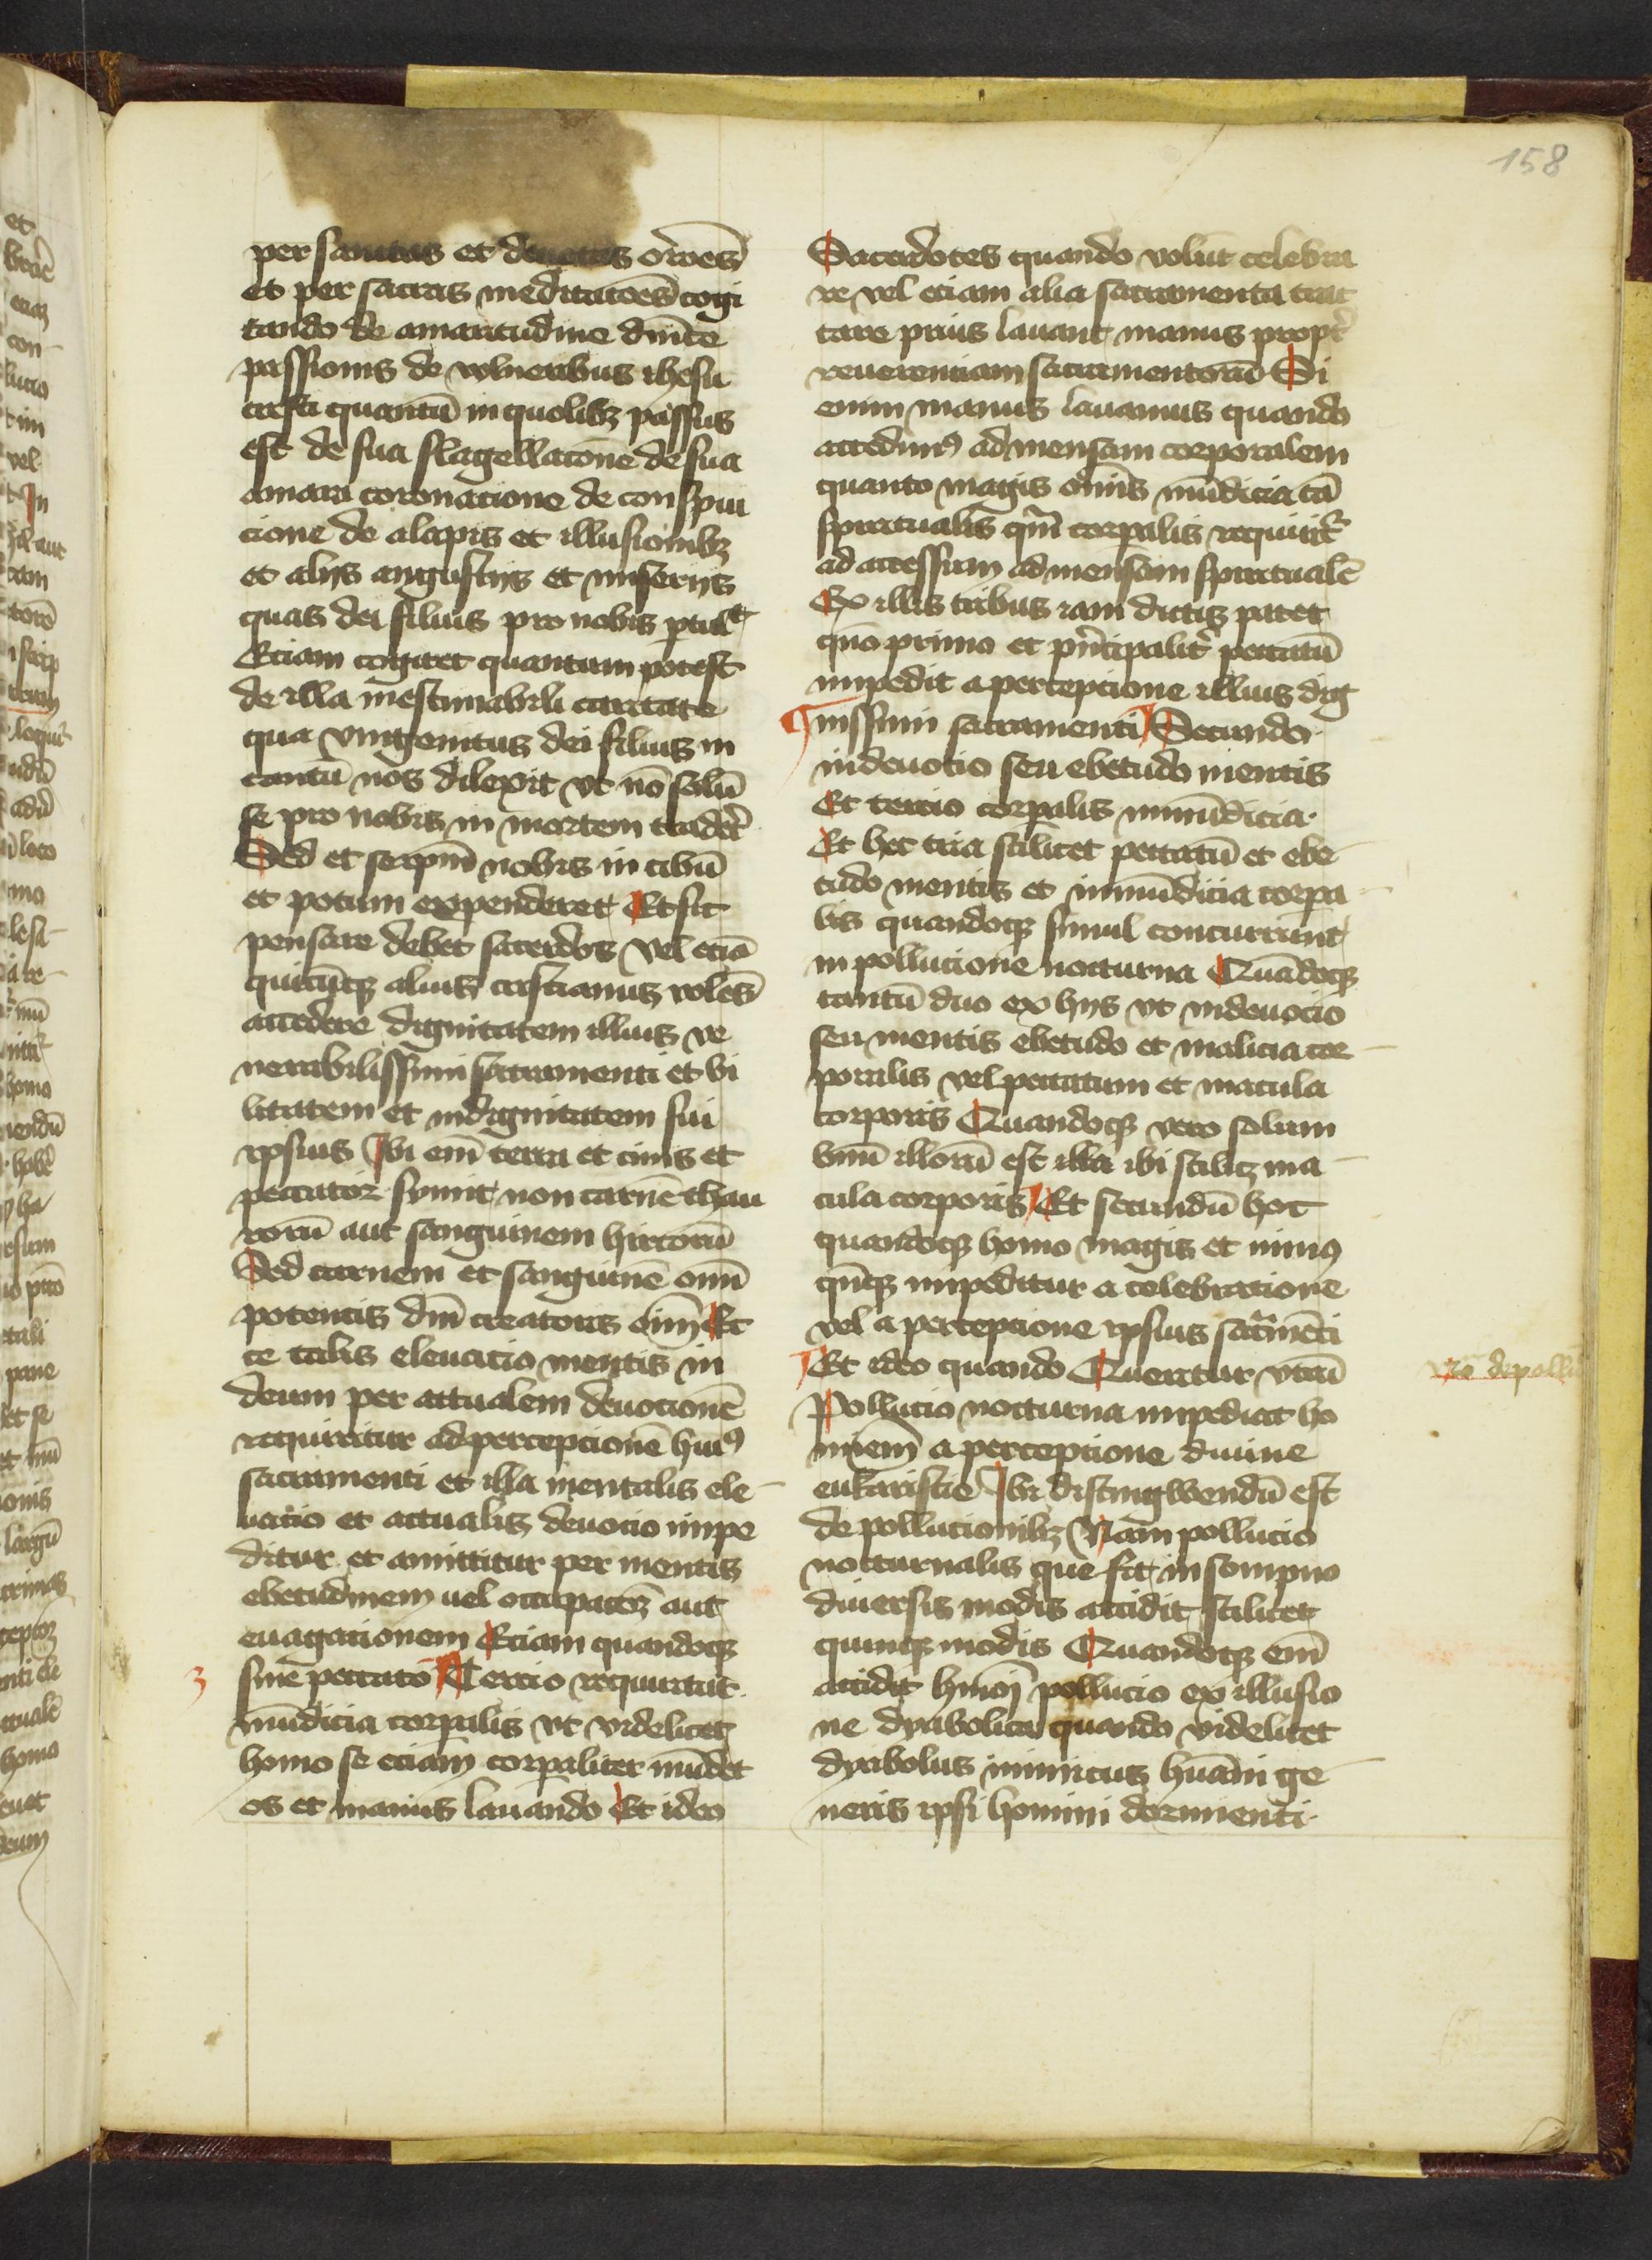 158
per sanctas et deuotas oroēs
et per sacras meditatoēs cogi
tando de amaritudine dn̄ice
passionis de vulneribus ihesu
cristi quantū in quolibꝫ passus
est de sua flagellacōne de sua
amara coronatione de conspui
cione de alapis et illusionibꝫ
et alijs angustijs et miserijs
quas dei filius pro nobis ꝑtulit
Etiam cogitet quantum potest
de illa inestimabili caritate
qua vnigenitus dei filius in
tantū nos dilexit vt nō solū
se pro nobis in mortem traderꝫ
Sed et seipm̄ nobis in cibū
et potum expenderet Et sic
pensare debet sacerdos vel eciā
quicūqꝫ alius cristianus volēs
accedere dignitatem illius ve
nerabilissimi sacramenti et vi
litatem et indignitatem sui
ipsius Ibi em̄ terra et cinis et
peccator sumit non carnē thau
rorū aut sanguinem hircorū
Sed carnem et sanguinē om̄i
potentis dn̄i creatoris oīm Et
te talis eleuatio mentis in
deum per actualem deuocionē
requiritur ad perceptionē huiꝰ
sacramenti et illa mentalis ele
uatio et actualis deuocio impe
ditur et amittitur per mentis
ebetudinem uel occupatōꝫ aut
euagationem Etiam quandoqꝫ
3 sine peccato Tercio requiritur
mūdicia corꝑalis vt videlicet
homo se eciam corꝑaliter mūdet
os et manus lauando Et ideo
Sacerdotes quando volūt celebra
re vel etiam alia sacramenta trac
tare prius lauant manus propt̄
reuerentiam sacramentorū Si
enim manus lauamus quando
accedimꝰ ad mensam corporalem
quanto magis om̄is mūdicia tā
spiritualis qm̄ corꝑalis requirit̄
ad accessum ad mensam spiritualē
Ex illis tribus iam dictis patet
qn̄o primo et pn̄cipalit̄ peccatū
impedit a perceptione illius dig
nissimi sacramenti Secundo
indeuotio seu ebetudo mentis
Et tercio corꝑalis inmūdicia
Et hec tria scilicet peccatū et ebe
tudo mentis et inmūdicia corꝑa
lis quandoqꝫ simul concurrunt
in pollucione nocturna Quādoqꝫ
tantū duo ex hijs vt indeuocio
seu mentis ebetudo et malicia cor
poralis vel peccatum et macula
corporis Quandoqꝫ vero solum
vnū illorū est illa ibi scilicꝫ ma
cula corporis Et secundū hoc
quandoqꝫ homo magis et minꝰ
qn̄qꝫ impeditur a celebratione
vel a perceptione ipsius sacr̄mēti
Et ideo quando Queritur vtrū
Pollucio nocturna impediat ho
minem a perceptione diuine
eukaristie Ibi distingwendū est
de pollucionibꝫ Nam pollucio
nocturnalis que fit in sompno
diuersis modis accidit scilicet
quinqꝫ modis Quandoqꝫ em̄
accidit hm̄oi pollucio ex illusio
ne dyabolica quando videlicet
dyabolus inimicus hūani ge
neris ipsi homini dormienti
de pollu